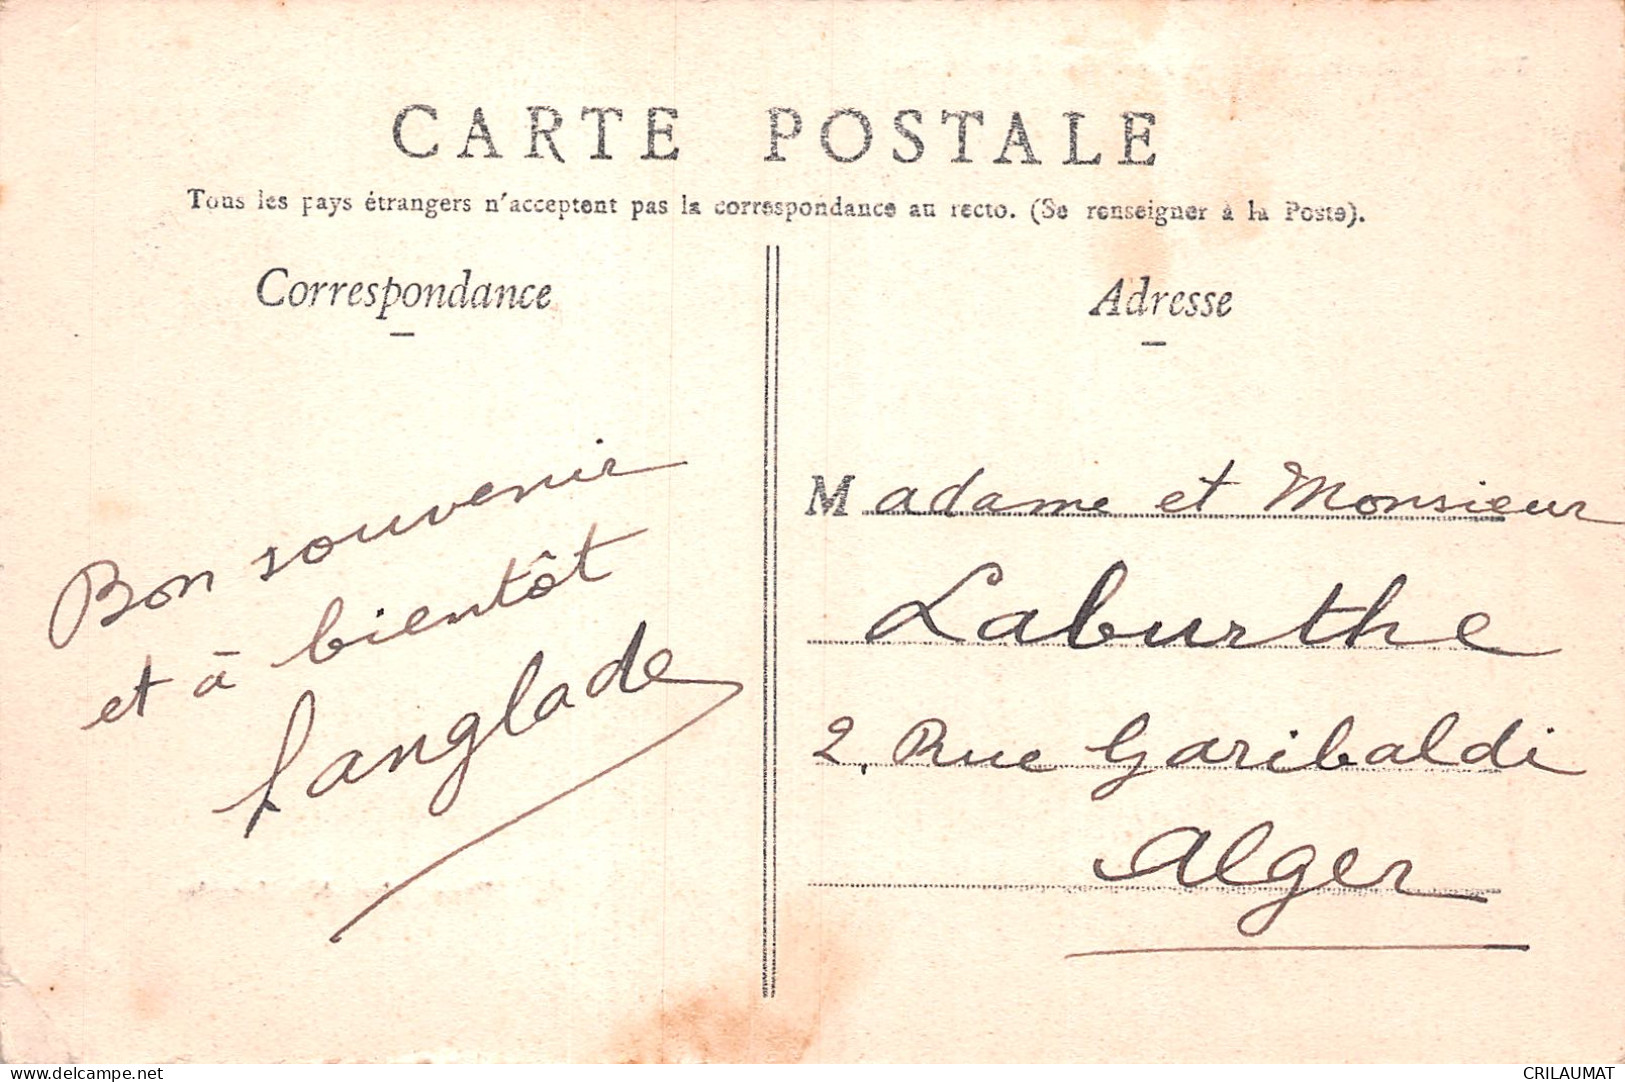 CARTE POSTALE
Tous les pays étrangers n'acceptent pas la correspondance au recto. (Se renseigner à la Poste).
Correspondance
Bon souvenir
et à bientôt
Langlade
Adresse
Madame et Monsieur
Laburthe
2, Rue Garibaldi
Alger
www.delcampe.net
CRILAUMAT